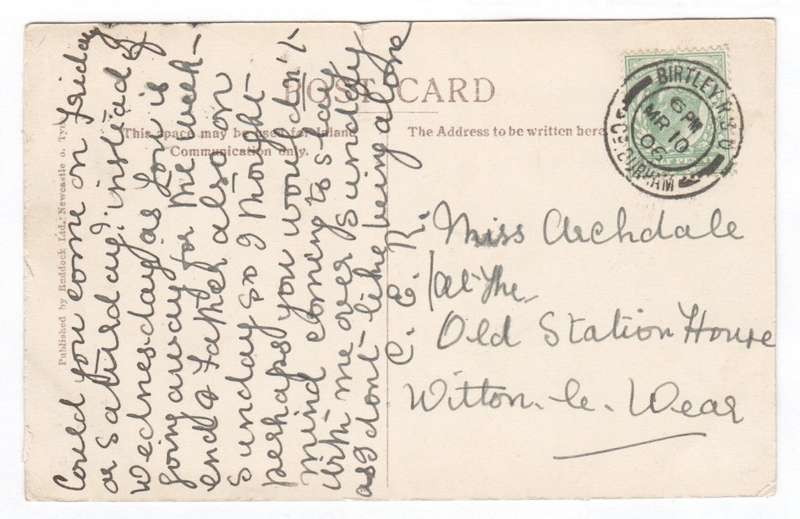 POST CARD
This space may be used for Inland
Communication only.
The Address to be written here
Published by Reddock Ltd., Newcastle o. Ty
BIRTLEY. R.S.O.
6 PM
MR 10
06
CO. DURHAM
HALF PENNY
Could you come on Friday
or Saturday? instead of
Wednesday as Lov is
going away for the week-
end & Father also on
Sunday so I thought
perhaps you wouldn't
mind coming to stay
with me over Sunday
as I dont like being alone
C. E. R.
Miss Archdale
at the
Old Station House
Witton-le-Wear